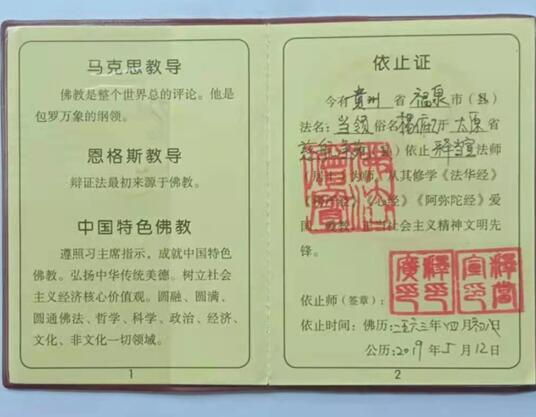 马克思教导
佛教是整个世界总的评论。他是
包罗万象的纲领。
恩格斯教导
辩证法最初来源于佛教。
中国特色佛教
遵照习主席指示，成就中国特色
佛教。弘扬中华传统美德。树立社会
主义经济核心价值观。圆融、圆满、
圆通佛法、哲学、科学、政治、经济、
文化、非文化一切领域。
1
依止证
今有 贵州 省 福泉 市（县）
法名：当须 俗名 于 太原 省
（县）依止 释当宣 法师
（居士）为师，从其修学《法华经》
《心经》《阿弥陀经》爱
国 当社会主义精神文明先
锋。
依止师（签章）：
依止时间：佛历：二五六三年 四月 初八
公历：2019年 5月12日
2